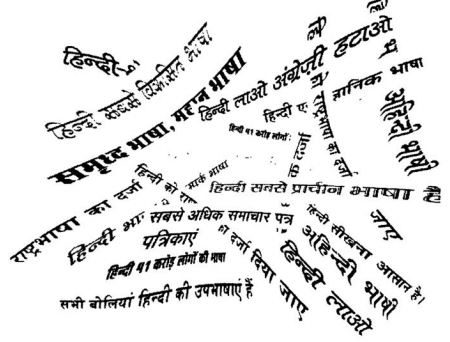 हिन्दी
हिन्दी सबसे विकसित भाषा
समृध्द भाषा, महान भाषा
हिन्दी लाओ अंग्रेजी हटाओ
हिन्दी ए
ज्ञानिक भाषा
अहिन्दी भाषी
राष्ट्रभाषा का दर्जा
हिन्दी 41 करोड़ लोगों
क दर्जा
राष्ट्रभाषा का दर्जा
हिन्दी को रा
मार्क भाषा
हिन्दी सबसे प्राचीन भाषा है
हिन्दी भा
सबसे अधिक समाचार पत्र
पत्रिकाएं
हिन्दी 41 करोड़ लोगों की भाषा
सभी बोलियां हिन्दी की उपभाषाएं हैं
का दर्जा दिया जाए
हिन्दी सीखना आसान है।
जाए
अहिन्दी भाषी
हिन्दी लाओ